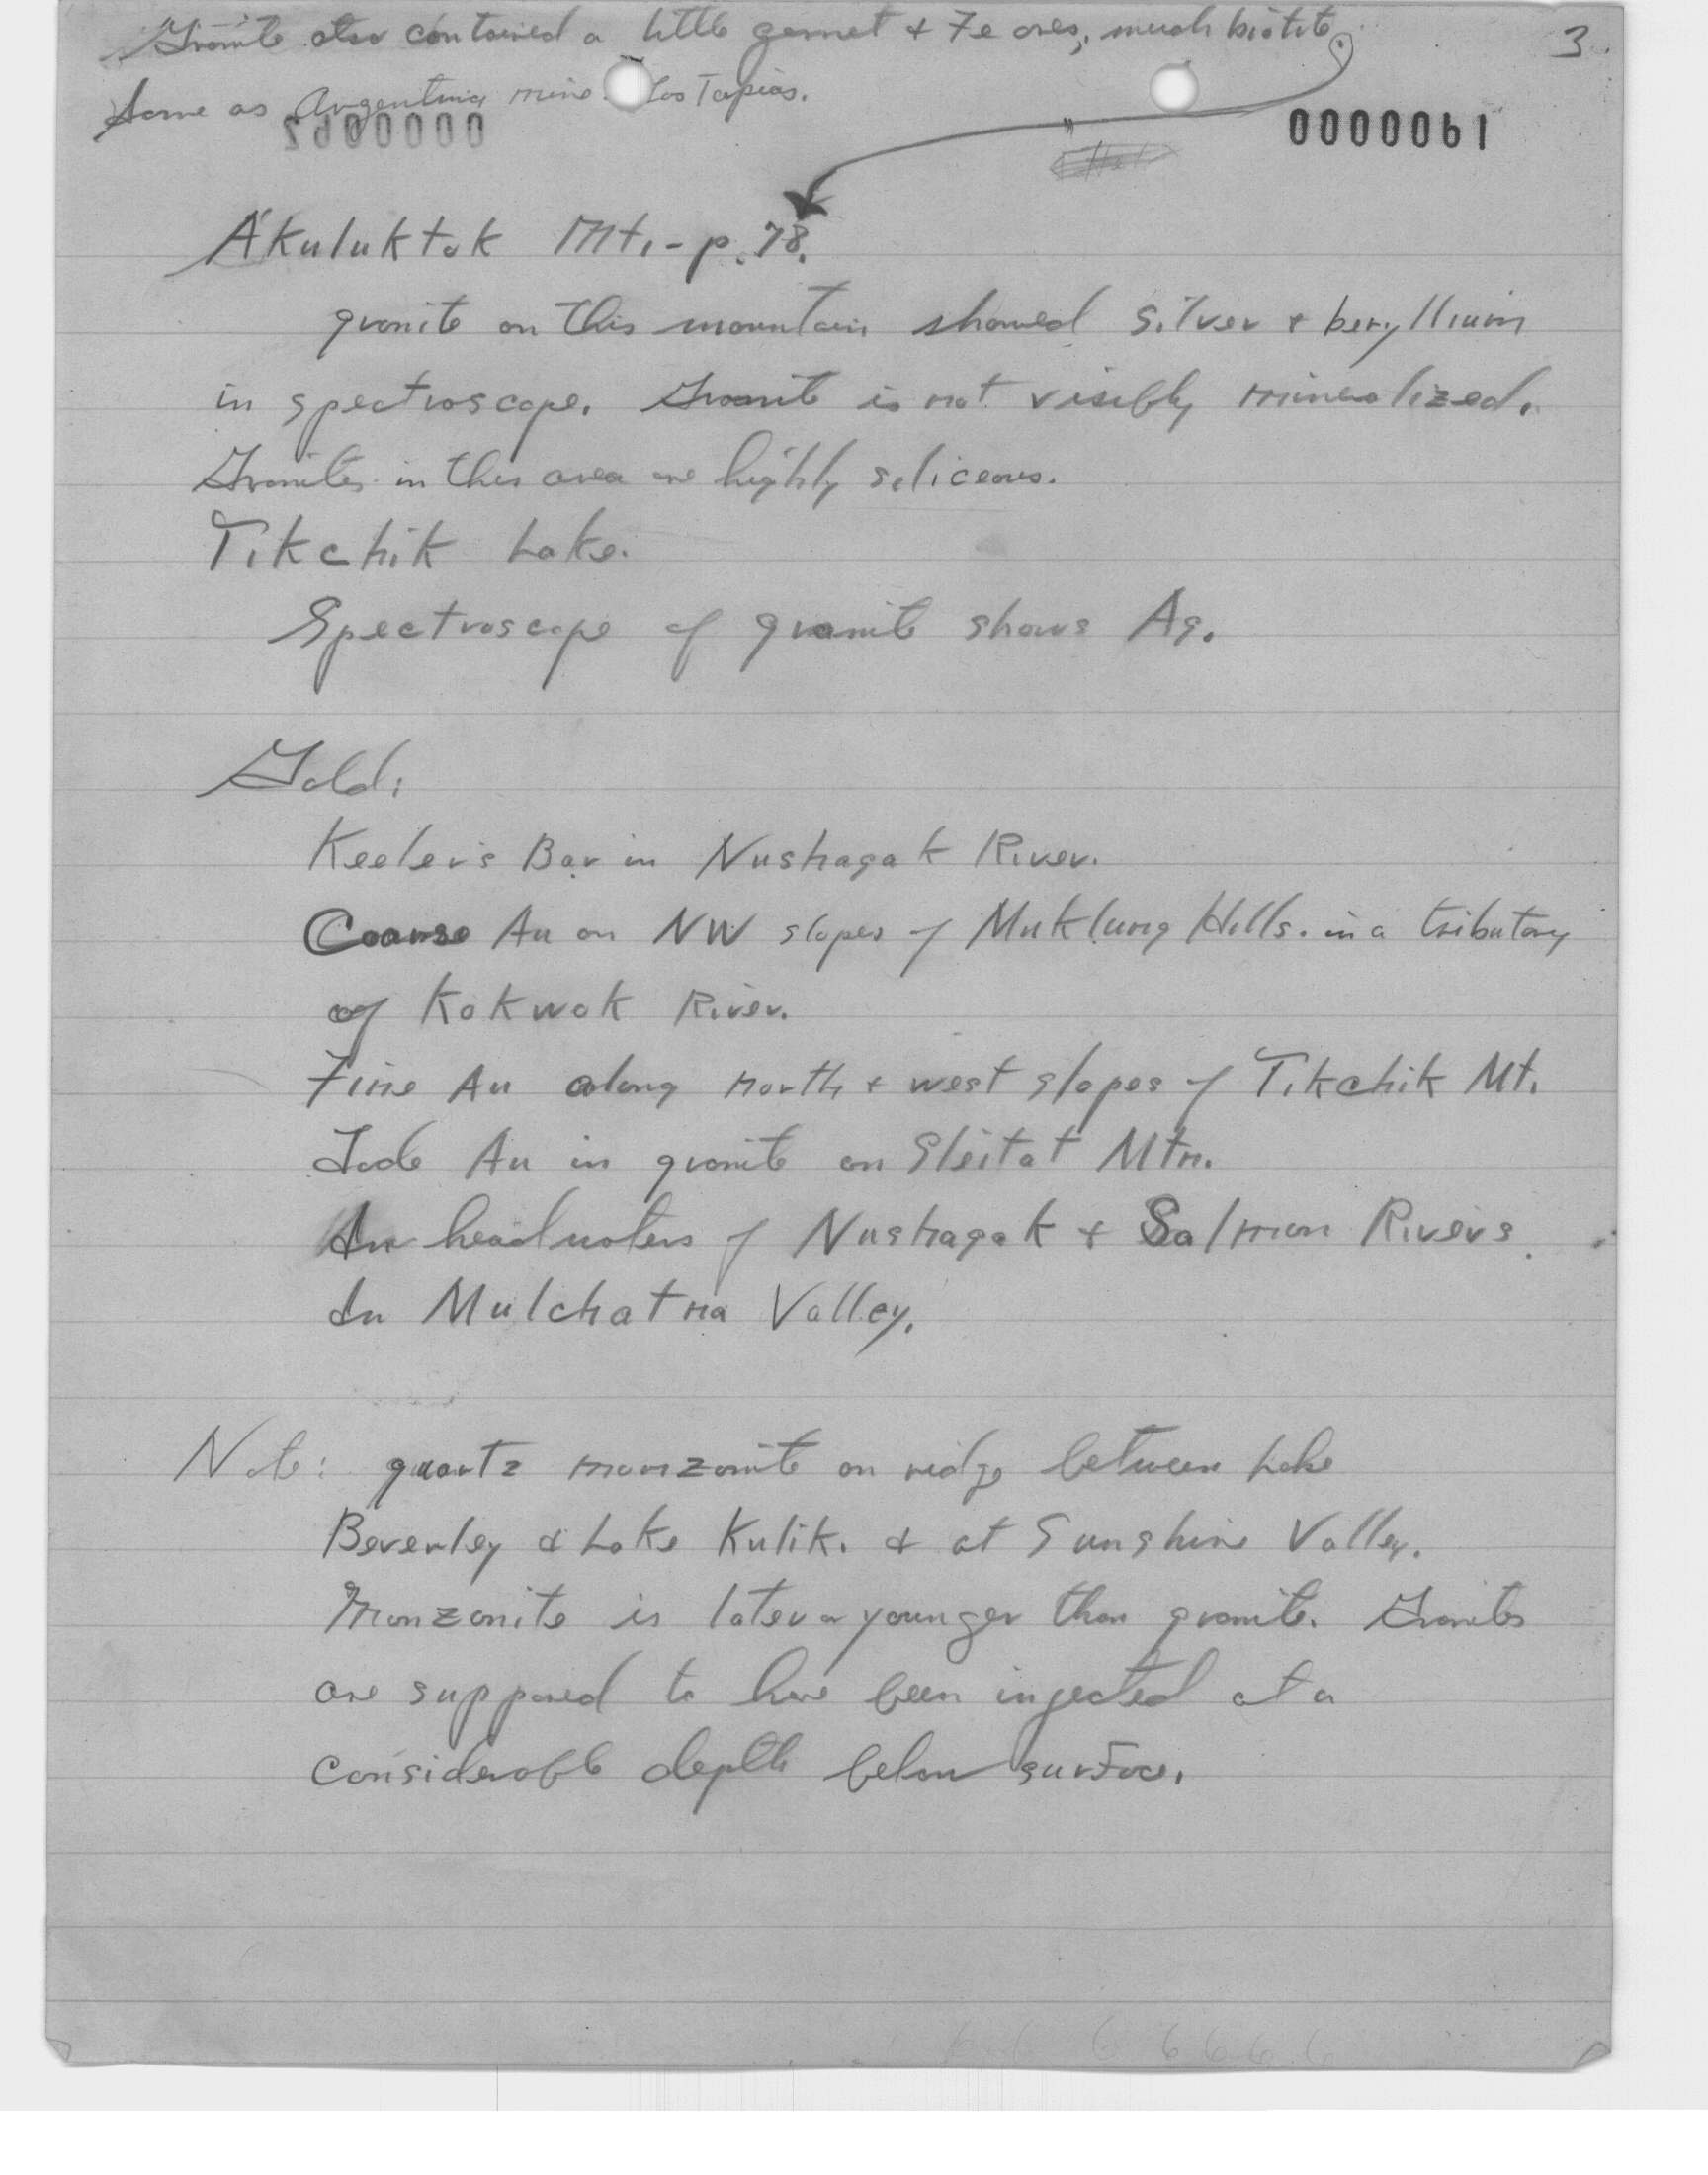 Granite also contained a little garnet & Fe ores, much biotite.
3.
Same as Argentina mine. Las Tapias.
0000061
Akuluktok Mt. - p. 78.
granite on this mountain showed silver & beryllium
in spectroscope. Granite is not visibly mineralized.
Granites in this area are highly siliceous.
Tikchik Lake.
Spectroscope of granite shows Ag.
Gold:
Keeler's Bar in Nushagak River.
Coarse Au on NW slopes of Muklung Hills. in a tributary
of Kokwok River.
Fine Au along north & west slopes of Tikchik Mt.
Lode Au in granite on Sleitat Mtn.
In headwaters of Nushagak & Salmon Rivers.
In Mulchatna Valley.
Note: quartz monzonite on ridge between Lake
Beverley & Lake Kulik. & at Sunshine Valley.
Monzonite is later or younger than granite. Granites
are supposed to have been injected at a
considerable depth below surface.